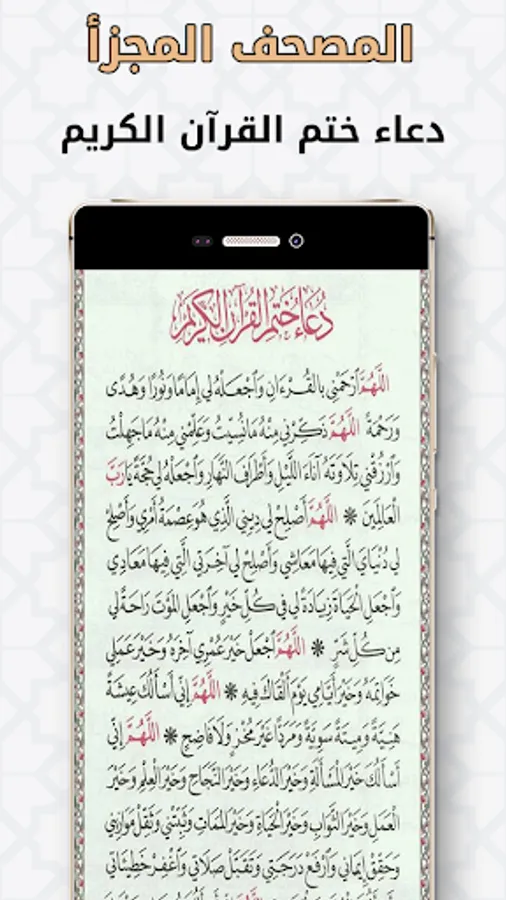 المصحف المجزأ
دعاء ختم القرآن الكريم
دُعَاءُ خَتْمِ القُرْآنِ الكَرِيمِ
اللَّهُمَّ ٱرْحَمْنِي بِالقُرْءَانِ وَٱجْعَلْهُ لِي إِمَامًا وَنُورًا وَهُدًى
وَرَحْمَةً اللَّهُمَّ ذَكِّرْنِي مِنْهُ مَانُسِّيتُ وَعَلِّمْنِي مِنْهُ مَاجَهِلْتُ
وَٱرْزُقْنِي تِلَاوَتَهُ آنَاءَ اللَّيْلِ وَأَطْرَافَ النَّهَارِ وَٱجْعَلْهُ لِي حُجَّةً يَارَبَّ
العَالَمِينَ * اللَّهُمَّ أَصْلِحْ لِي دِينِي الَّذِي هُوَ عِصْمَةُ أَمْرِي وَأَصْلِحْ
لِي دُنْيَايَ الَّتِي فِيهَا مَعَاشِي وَأَصْلِحْ لِي آخِرَتِي الَّتِي فِيهَا مَعَادِي
وَٱجْعَلِ الْحَيَاةَ زِيَادَةً لِي فِي كُلِّ خَيْرٍ وَٱجْعَلِ المَوْتَ رَاحَةً لِي
مِن كُلِّ شَرٍّ * اللَّهُمَّ ٱجْعَلْ خَيْرَ عُمْرِي آخِرَهُ وَخَيْرَ عَمَلِي
خَوَاتِمَهُ وَخَيْرَ أَيَّامِي يَوْمَ أَلْقَاكَ فِيهِ * اللَّهُمَّ إِنِّي أَسْأَلُكَ عِيشَةً
هَنِيَّةً وَمِيتَةً سَوِيَّةً وَمَرَدًّا غَيْرَ مُخْزٍ وَلَا فَاضِحٍ * اللَّهُمَّ إِنِّي
أَسْأَلُكَ خَيْرَ المَسْأَلَةِ وَخَيْرَ الدُّعَاءِ وَخَيْرَ النَّجَاحِ وَخَيْرَ العِلْمِ وَخَيْرَ
العَمَلِ وَخَيْرَ الثَّوَابِ وَخَيْرَ الْحَيَاةِ وَخَيْرَ المَمَاتِ وَثَبِّتْنِي وَثَقِّلْ مَوَازِينِي
وَحَقِّقْ إِيمَانِي وَٱرْفَعْ دَرَجَتِي وَتَقَبَّلْ صَلَاتِي وَٱغْفِرْ خَطِيئَاتِي